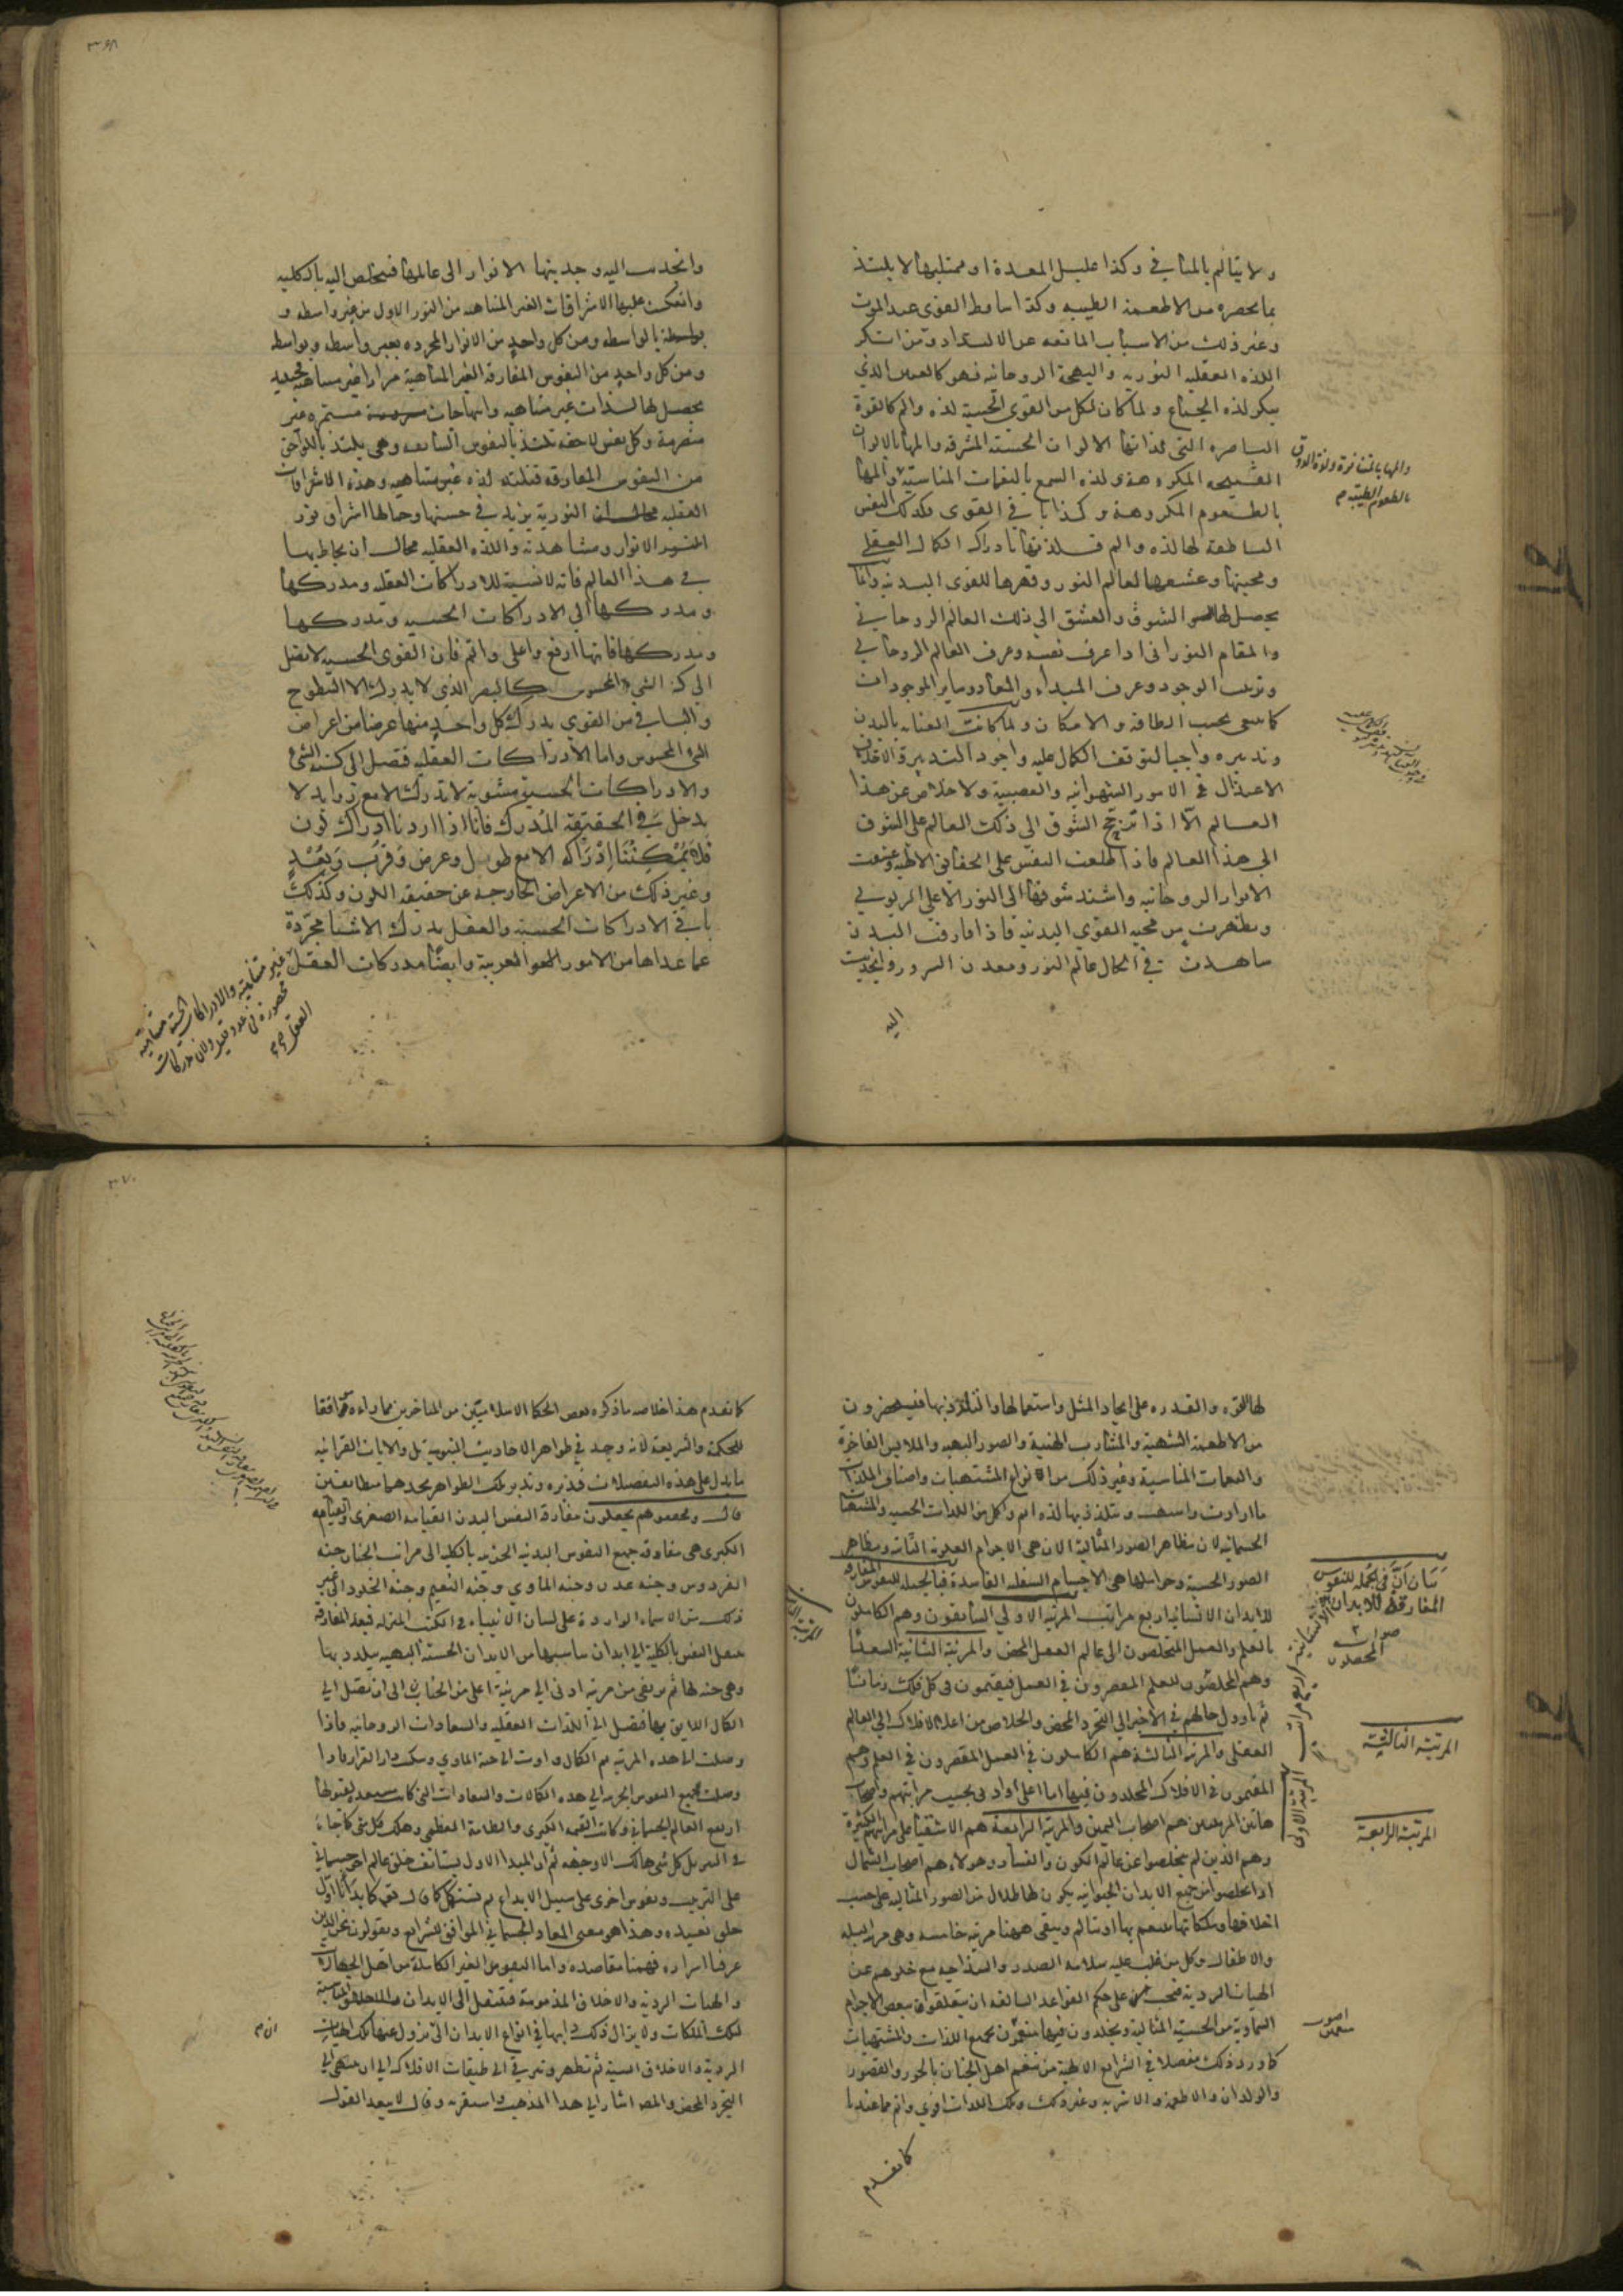 ولا يتالم بالمنافي وكذا عليل المعدة او ممتليها لا يلتذ
بما يحضره من الاطعمة الطيبه وكذا ساقط القوى عند الموت
وغير ذلك من الاسباب المانعه عن الالتذاد ومن انكر
اللذه العقليه النوريه والبهجة الروحانيه فهو كالعنين الذي
ينكر لذه الجماع ولما كان لكل من القوى الحسية لذه والم كالقوة
الباصره التي لذاتها الالوان الحسنه المشرقه والمها بالالوان
القبيحه المكروهة ولذه السمع بالنغمات المناسبة والمها
والمها بالمتنافرة ولذة الذوق
بالطعوم الطيبة م
بالطعوم المكروهة وكذا باقي القوى فكذلك النفس
الناطقة لها لذه والم فلذتها بادراك الكمال العقلي
ومحبتها وعشقها لعالم النور وقهرها للقوى البدنيه وانما
يحصل لها الشوق والعشق الى ذلك العالم الروحاني
والمقام النوراني اذا عرف نفسه وعرف العالم الروحاني
وترتيب الوجود وعرف المبداء والمعاد وساير الموجودات
كما ينبغي بحسب الطاقه والامكان ولما كانت العنايه بالبدن
وتدبيره واجبا لتوقف الكمال عليه واجود التدبير
الاعتدال في الامور الشهوانيه والغضبية ولا خلاص عن هذا
العالم الا اذا ترجح الشوق الى ذلك العالم على الشوق
الى هذا العالم فاذا اطلعت النفس على الحقايق الالهيه وعشقت
الانوار الروحانيه واشتد شوقها الى النور الاعلى الربوبي
وتطهرت من محبه القوى البدنيه فاذا فارقت البدن
شاهدت في الحال عالم النور ومعدن السرور وانجذبت
اليه
٣٦٨
وانجذبت اليه وجذبتها الانوار الى عالمها فتخلص اليه بالكليه
وانعكست عليها الاشراقات الغير المتناهيه من النور الاول من غير واسطه و
بواسطه ومن كل واحد من الانوار المجرده بغير واسطه وبواسطه
ومن كل واحد من النفوس المفارقه الغير المتناهية مرارا غير متناهيه
يحصل لها لذات غير متناهيه وابتهاجات مستمره غير
منصرمة وكل نفس لاحقه تلتذ بالنفوس السابقه وهي يلتذ باللواحق
من النفوس المفارقه فتلتذ لذه غير متناهيه وهذه الاشراقات
العقليه النورية يزيد في حسنها وجمالها اشراق نور
النور الانوار ومشاهدته واللذه العقليه محال ان يحاط بها
في هذا العالم فانه لا نسبة للادراكات العقليه ومدركها
ومدركها الى الادراكات الحسيه ومدركها
ومدركها فانها ارفع واعلى واتم فان القوى الحسيه لا تصل
الى كنه الشيء المحسوس كالبصر الذي لا يدرك الا السطوح
والباقي من القوى يدرك كل واحد منها عرضا من اعراض
الشي المحسوس واما الادراكات العقليه فتصل الى كنه الشي
والادراكات الحسية مشوبة لا تدرك الا مع زوايد لا
يدخل في الحقيقه المدرك فانا اذا اردنا ادراك لون
فلا يمكننا ادراكه الا مع طول وعرض وقرب وبعد
وغير ذلك من الاعراض الخارجه عن حقيقه اللون وكذلك
باقي الادراكات الحسيه والعقل يدرك الاشيا مجردة
عما عداها من الامور الغريبة وايضا مدركات العقل
غير متناهية والادراكات الحسية متناهية
محصورة في عدد قليل ولان مدركات
العقل
لها القوه والقدره على ايجاد المثل واستعمالها والتلذذ بها فيستحضرون
من الاطعمة الشهية والمشارب الهنية والصور البهيه والملابس الفاخرة
والنغمات المناسبة وغير ذلك من انواع المشتهيات واصناف الملذات
ما ارادت واشتهت وتتلذذ بها لذه اتم واكمل من اللذات الحسيه والمشتهيات
الجسمانيه لان مظاهر الصور المثالية الان هي الاجرام العلويه الثابته ومظاهر
الصور الحسية وحواملها هي الاجسام السفليه الفاسدة فبالجمله للنفوس المفارقه
للابدان الانسانيه اربع مراتب المرتبه الاولى السابقون وهم الكاملون
بالعلم والعمل المتخلصون الى عالم العقل المحض والمرتبة الثانية السعدا
وهم المحصلون للعلم المقصرون في العمل فيقيمون في كل فلك زمانا
ثم يؤول حالهم في الاخير الى التجرد المحض والخلاص من اعلا الافلاك الى العالم
العقلي والمرتبه الثالثة هم الكاملون في العمل المقصرون في العلم وهم
المقيمون في الافلاك المخلدون فيها اما اعلى او ادنى بحسب مراتبهم واصحاب
هاتين المرتبتين هم اصحاب اليمين والمرتبة الرابعة هم الاشقيا على مراتبهم الكثيرة
وهم الذين لم يخلصوا عن عالم الكون والفساد وهولاء هم اصحاب الشمال
اذا تخلصوا من جميع الابدان الحيوانيه يكون لها ظلال من الصور المثاليه على حسب
اخلاقها وملكاتها تتنعم بها او تتالم ويبقى ههنا مرتبه خامسه وهي مرتبه البله
والاطفال وكل من غلب عليه سلامه الصدر والسذاجه مع خلوهم عن
الهيات الردية فيجب على حكم القواعد السالفه ان يتعلقوا ببعض الاجرام
السماوية من الحسية المثالية ويخلدون فيها متنعمين بجميع اللذات والمشتهيات
كما ورد ذلك مفصلا في الشرايع الالهية من تنعم اهل الجنان بالحور والقصور
والولدان والاطعمه والاشربه وغير ذلك وتلك اللذات اقوى واتم مما عندنا
كما تقدم
بيان ان في الجمله للنفوس
المفارقه للابدان الانسانية اربع مراتب
صوابه
المحصلون
المرتبة الاولى
المرتبة الثالثة
المرتبة الرابعة
٣٧٠
كما تقدم هذا خلاصه ما ذكره بعض الحكما الاسلاميين من المتاخرين مما راه موافقا
للحكمه والشريعه لانه وجد في ظواهر الاحاديث النبوية بل والايات القرانيه
ما يدل على هذه التفصيلات فتدبره وتدبر تلك الظواهر تجدهما متطابقين
قال وبعضهم يجعلون مفارقة النفس البدن القيامه الصغرى والقيامه
الكبرى هي مفارقه جميع النفوس البدنيه الجزييه بالكليه الى مراتب الجنان جنه
الفردوس وجنه عدن وجنه الماوى وجنه النعيم وجنه الخلد الى غير
ذلك من الاسماء الواردة على لسان الانبياء في الكتب المنزله فبعد المفارقه
تنتقل النفس بالكلية الى ابدان يناسبها من الابدان الحسنه البهيه يتلذذ بها
وهي جنه لها ثم ترتقي من مرتبه ادنى الى مرتبة اعلى من الجنان الى ان تصل الى
الكمال اللايق بها فتصل الى اللذات العقليه والسعادات الروحانيه فاذا
وصلت الى هذه المرتبه من الكمال واوت الى جنة الماوى وسكنت دار القرار فاذا
وصلت جميع النفوس الجزييه الى هذه الكمالات والسعادات التي كانت مستعده لقبولها
ارتفع العالم الجسماني وكانت القيمه الكبرى والطامة العظمى وهلك كل شي كما جاء
في التنزيل كل شي هالك الا وجهه ثم ان المبدا الاول يستانف خلق عالم اخر جسماني
على الترتيب ونفوس اخرى على سبيل الابداع ثم تستكمل كما قال تعالى كما بدانا اول
خلق نعيده وهذا هو معنى المعاد الجسماني الموافق للشرايع ويقولون نحن الذين
عرفنا اسراره وفهمنا مقاصده واما النفوس الغير الكاملة من اهل الجهالة
والهيات الرديه والاخلاق المذمومة فتنتقل الى الابدان المناسبة
لتلك الملكات ولا يزال ذلك دابها في انواع الابدان الى ان يزول عنها تلك الهيات
الردية والاخلاق السيية ثم تطهر وترتقي الى طبقات الافلاك الى ان تنتهي الى
التجرد المحض والمص اشار الى هذا المذهب واستقربه وقال لا يبعد القول